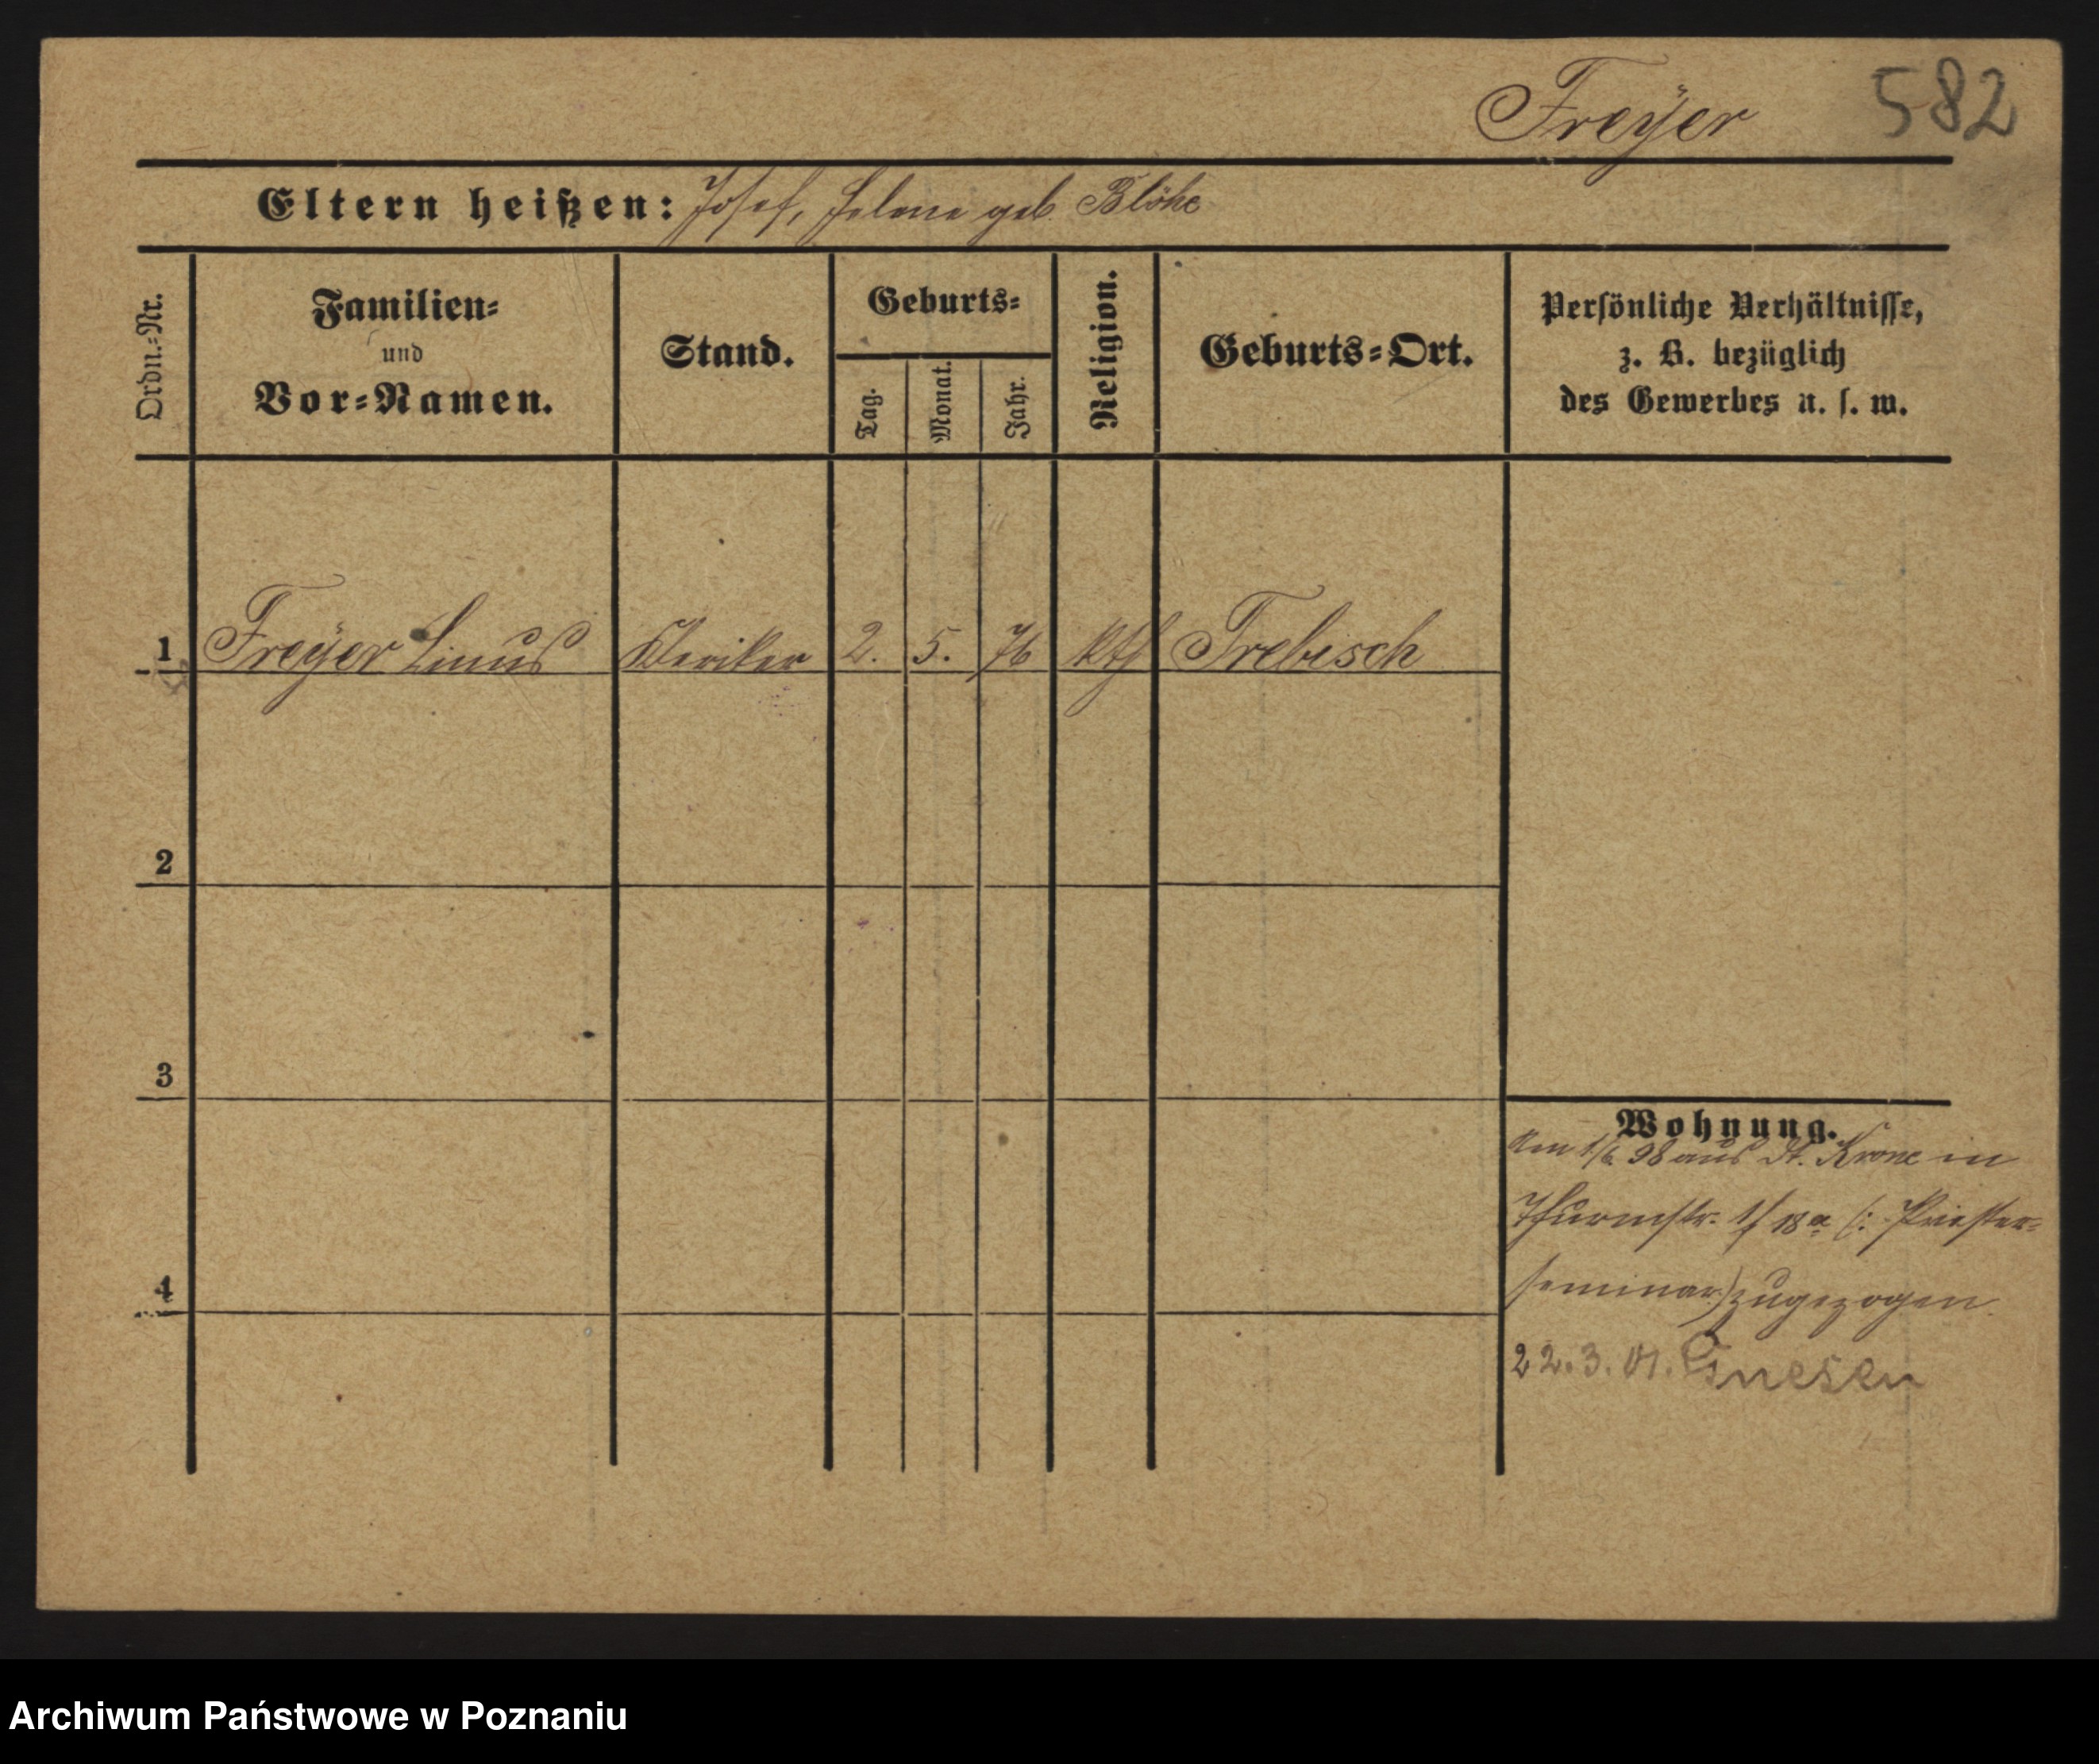 Freÿer 582
Eltern heißen: Josef, Helene geb. Blöhe
Ordn.-Nr.
Familien-
und
Vor-Namen.
Stand.
Geburts-
Tag.
Monat.
Jahr.
Religion.
Geburts-Ort.
Persönliche Verhältnisse,
z. B. bezüglich
des Gewerbes u. s. w.
1 Freÿer Linus Kleriker 2. 5. 76 kth Trebisch
2
3
4
Wohnung.
Am 1/6 98 aus Dt. Krone in
Thurmstr. 1/18a (: Priester-
seminar) zugezogen
22.3.01. Gnesen
Archiwum Państwowe w Poznaniu